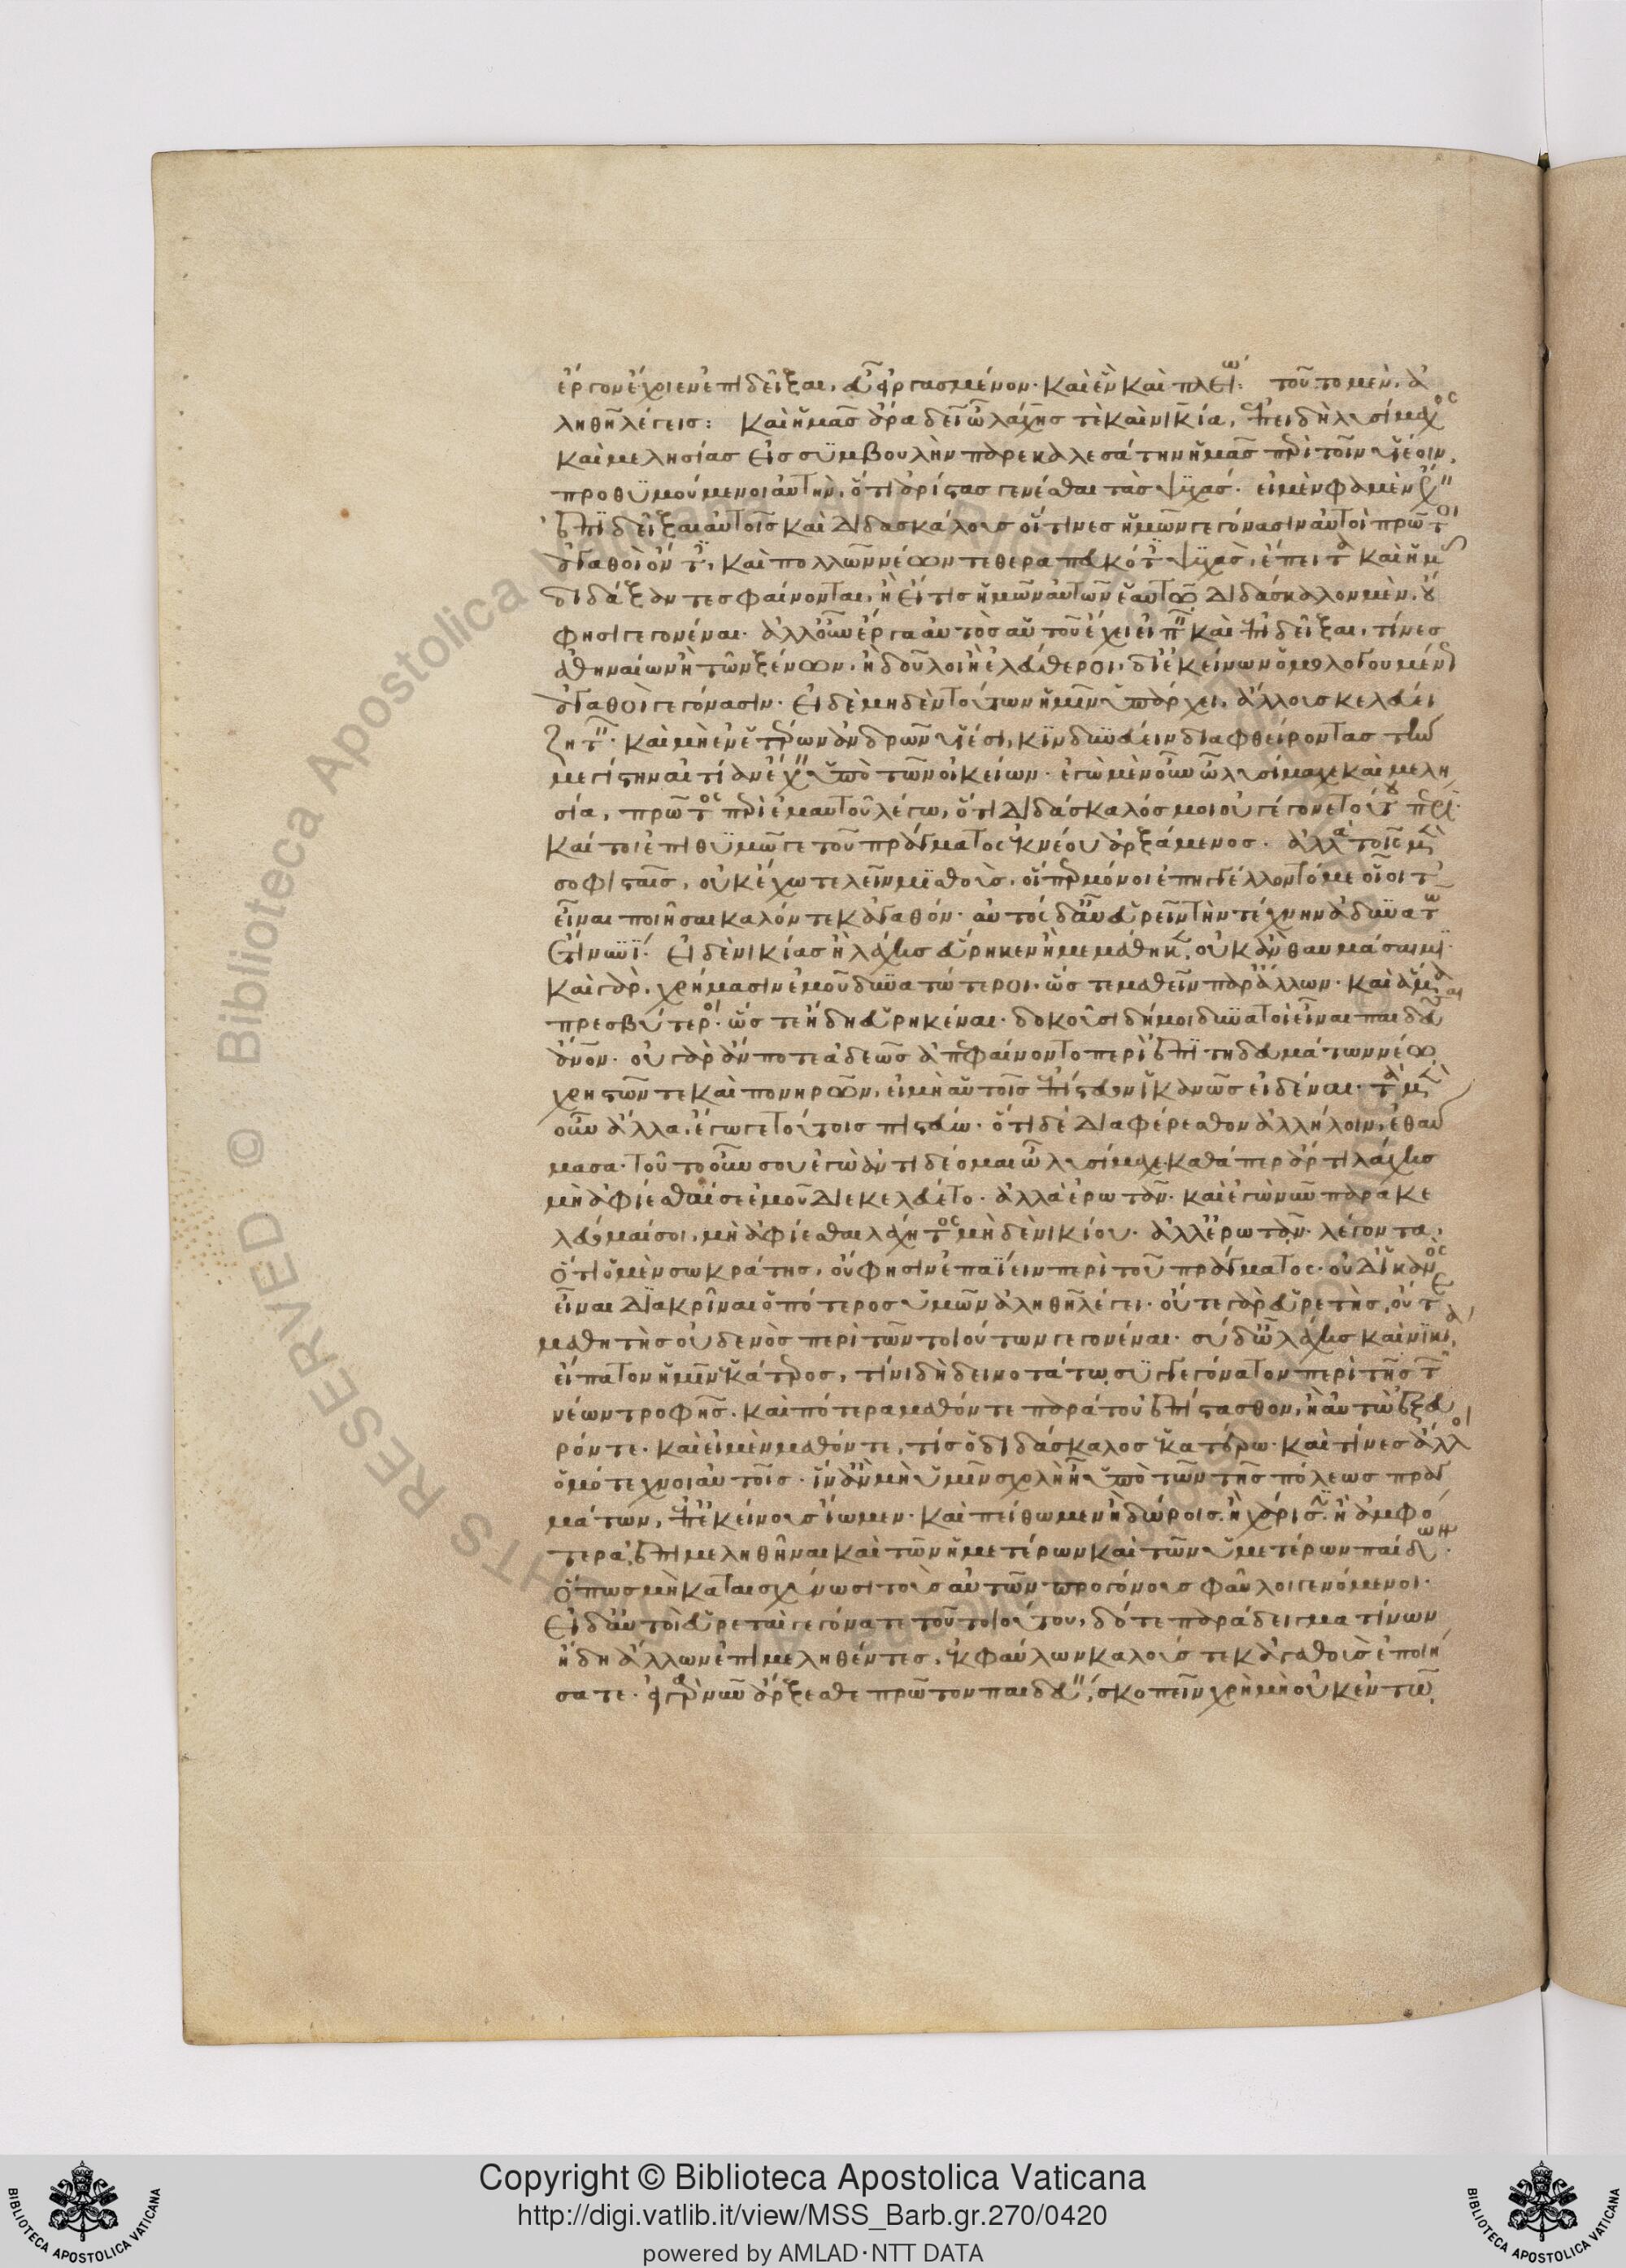 ἔργον ἔχοιεν ἐπιδεῖξαι, εὖ εἰργασμένον· καὶ ἓν καὶ πλείω: τοῦτο μὲν, ἀ
ληθῆ λέγεις: καὶ ἡμᾶς ἄρα δεῖ ὦ λάχης τὲ καὶ νικία, ἐπειδὴ λυσίμαχος
καὶ μελησίας εἰς συμβουλὴν παρεκαλεσάτην ἡμᾶς περὶ τοῖν υἱέοιν,
προθυμούμενοι αὐτὴν, ὅτι ἀρίστας γενέσθαι τὰς ψυχάς· εἰ μὲν φαμὲν ἔχειν
ἐπιδεῖξαι αὐτοῖς καὶ διδασκάλους οἵτινες ἡμῶν γεγόνασιν αὐτοὶ πρῶτοι
ἀγαθοὶ ὄντες, καὶ πολλῶν νέων τεθεραπευκότες ψυχὰς, ἔπειτα καὶ ἡμᾶς
διδάξαντες φαίνονται, ἢ εἴ τις ἡμῶν αὐτῶν ἑαυτῶ διδάσκαλον μὲν, οὔ
φησι γεγονέναι· ἀλλ' οὖν ἔργα αὐτὸς αὑτοῦ ἔχει εἰπεῖν καὶ ἐπιδεῖξαι, τίνες
ἀθηναίων ἢ τῶν ξένων, ἢ δοῦλοι ἢ ἐλεύθεροι, δι' ἐκείνων ὁμολογουμένως
ἀγαθοὶ γεγόνασιν· εἰ δὲ μηδὲν τούτων ἡμῖν ὑπάρχει, ἄλλους κελεύει
ζητεῖν· καὶ μὴ ἐν ἑτέρων ἀνδρῶν υἱέσι, κινδυνεύειν διαφθείροντας τὴν
μεγίστην αἰτίαν ἔχειν ὑπὸ τῶν οἰκείων· ἐγὼ μὲν οὖν ὦ λυσίμαχε καὶ μελη
σία, πρῶτος περὶ ἐμαυτοῦ λέγω, ὅτι διδάσκαλός μοι οὐ γέγονε τούτου πέρι·
καί τοι ἐπιθυμῶ γε τοῦ πράγματος ἐκ νέου ἀρξάμενος· ἀλλὰ τοῖς μὲν
σοφισταῖς, οὐκ ἔχω τελεῖν μισθοὺς, οἵπερ μόνοι ἐπηγγέλλοντό με οἷοί τ'
εἶναι ποιῆσαι καλόν τε κἀγαθόν· αὐτὸς δ' αὖ εὑρεῖν τὴν τέχνην ἀδυνατῶ
ἔτι νυνί· εἰ δὲ νικίας ἢ λάχης εὕρηκεν ἢ μεμάθηκεν, οὐκ ἂν θαυμάσαιμι·
καὶ γὰρ, χρήμασιν ἐμοῦ δυνατώτεροι· ὥστε μαθεῖν παρ' ἄλλων· καὶ ἅμα
πρεσβύτεροι· ὥστε ἤδη εὑρηκέναι· δοκοῦσι δή μοι δυνατοὶ εἶναι παιδεῦσαι
ἄνον· οὐ γὰρ ἄν ποτε ἀδεῶς ἀπεφαίνοντο περὶ ἐπιτηδευμάτων νέω
χρηστῶν τε καὶ πονηρῶν, εἰ μὴ αὑτοῖς ἐπίστευον ἱκανῶς εἰδέναι· τὰ μὲν
οὖν ἄλλα, ἔγωγε τούτοις πιστεύω· ὅτι δὲ διαφέρεσθον ἀλλήλοιν, ἐθαύ
μασα· τοῦτο οὖν σου ἐγὼ ἀντιδέομαι ὦ λυσίμαχε· καθάπερ ἄρτι λάχης
μὴ ἀφίεσθαί σε ἐμοῦ διεκελεύετο· ἀλλὰ ἐρωτᾶν· καὶ ἐγὼ νῦν παρακε
λεύομαί σοι, μὴ ἀφίεσθαι λάχητος μὴ δὲ νικίου· ἀλλ' ἐρωτᾶν· λέγοντα,
ὅτι ὁ μὲν σωκράτης, οὔ φησιν ἐπαΐειν περὶ τοῦ πράγματος· οὐ δ' ἱκανὸς
εἶναι διακρῖναι ὁπότερος ὑμῶν ἀληθῆ λέγει· οὔτε γὰρ εὑρετὴς, οὔτε
μαθητὴς οὐδενὸς περὶ τῶν τοιούτων γεγονέναι· σὺ δ' ὦ λάχης καὶ νικία,
εἴπατον ἡμῖν ἑκάτερος, τίνι δὴ δεινοτάτω συγγεγόνατον περὶ τῆς τῶν
νέων τροφῆς· καὶ πότερα μαθόντε παρά του ἐπίστασθον, ἢ αὐτὼ ἐξευ
ρόντε· καὶ εἰ μὲν μαθόντε, τίς ὁ διδάσκαλος ἑκατέρω· καὶ τίνες ἄλλοι
ὁμότεχνοι αὐτοῖς· ἵν' ἂν μὴ ὑμῖν σχολὴ ᾖ ὑπὸ τῶν τῆς πόλεως πραγ
μάτων, ἐπ' ἐκείνους ἴωμεν· καὶ πείθωμεν ἢ δώροις ἢ χάρισιν ἢ ἀμφό
τερα, ἐπιμεληθῆναι καὶ τῶν ἡμετέρων καὶ τῶν ὑμετέρων παίδων·
ὅπως μὴ καταισχύνωσι τοὺς αὑτῶν προγόνους φαῦλοι γενόμενοι·
εἰ δ' αὐτοὶ εὑρεταὶ γεγόνατε τοῦ τοιούτου, δότε παράδειγμα τίνων
ἤδη ἄλλων ἐπιμεληθέντες, ἐκ φαύλων καλούς τε κἀγαθοὺς ἐποιή
σατε· εἰ γὰρ νῦν ἄρξεσθε πρῶτον παιδεύειν, σκοπεῖν χρὴ μὴ οὐκ ἐν τῶ